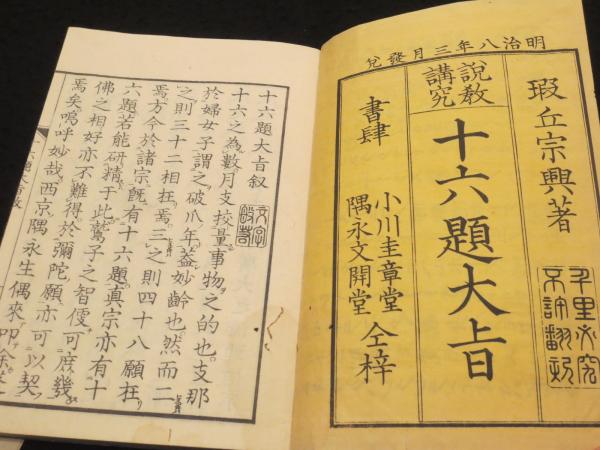 明治八年三月發兌
瑕丘宗興著
千里必究
不許翻刻
説教
講究
十六題大㫖
書肆
小川圭章堂
隅永文開堂
仝梓
十六題大㫖叙
十六之為數月支挍量事物之的也。支那
於婦女子謂之破爪年。葢妙齡也然而二
之則三十二相在焉。三之則四十八願在
焉方今於諸宗。既有十六題真宗亦有十
六題若能研精于此鶖子之智便可庶幾
佛之相好亦不難得。於彌陀願亦可以契
焉矣。嗚呼妙哉。西京隅永生偶來叩余